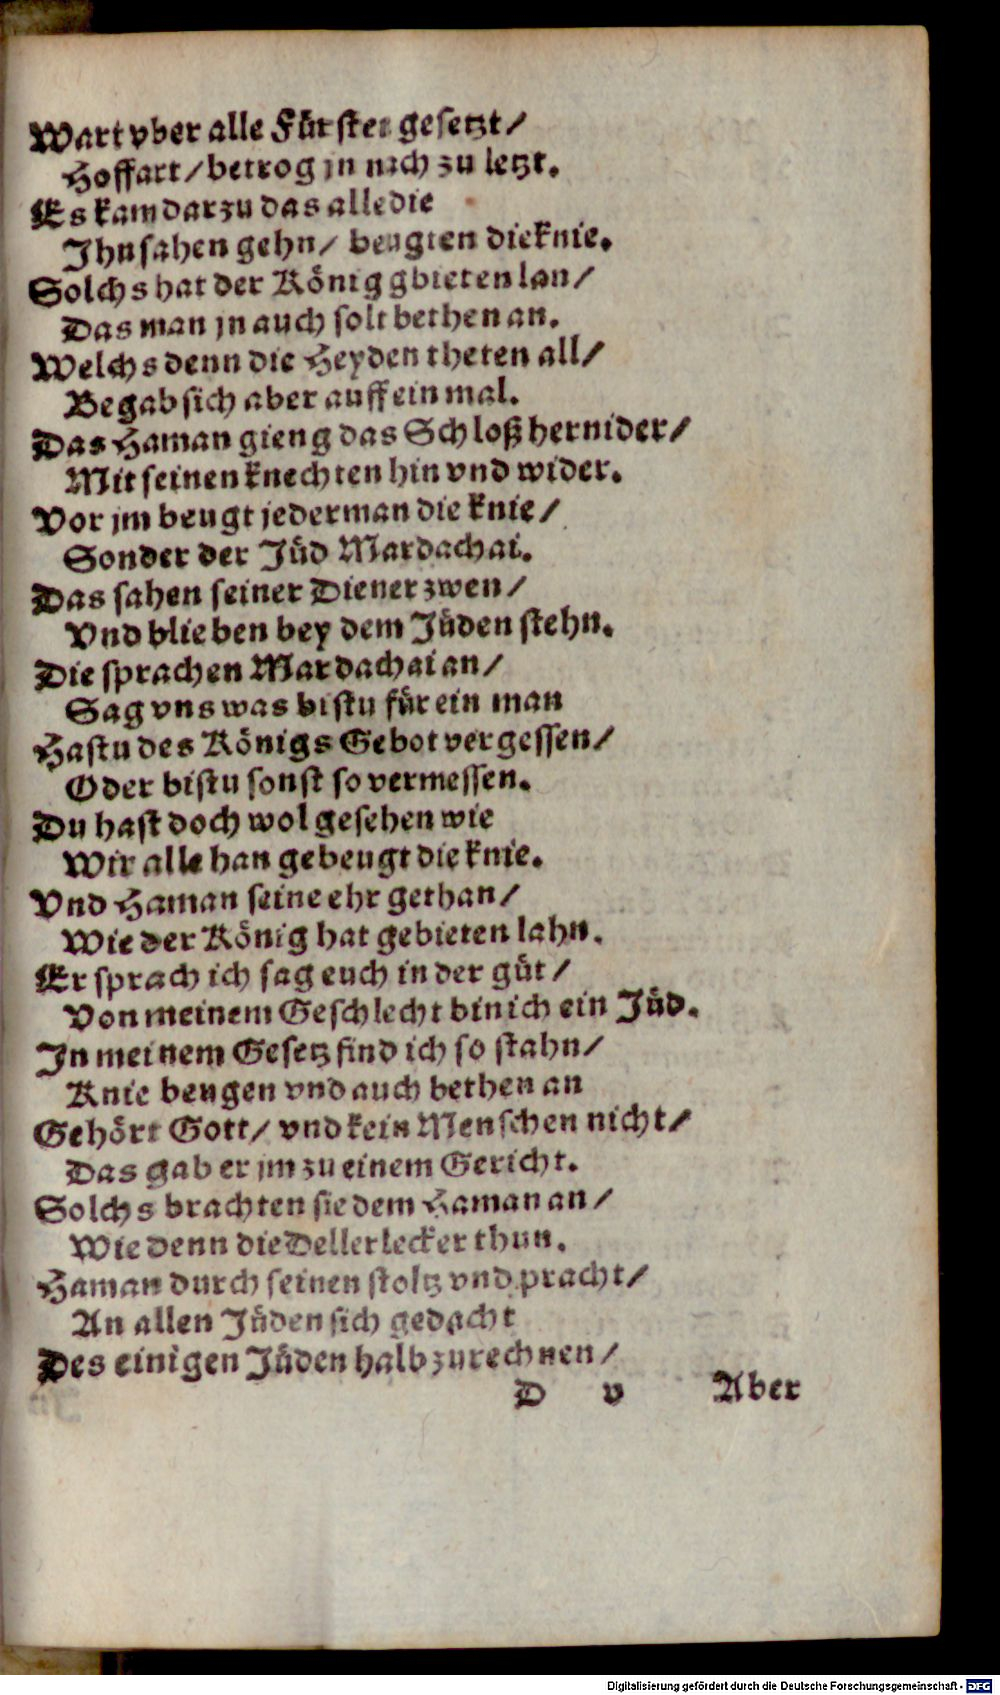 Wart vber alle Fürsten gesetzt/
Hoffart/ betrog jn nach zu letzt.
Es kam darzu das alle die
Jhn sahen gehn/ beugten die knie.
Solchs hat der König gbieten lan/
Das man jn auch solt bethen an.
Welchs denn die Heyden theten all/
Begab sich aber auff ein mal.
Das Haman gieng das Schloß hernider/
Mit seinen knechten hin vnd wider.
Vor jm beugt jederman die knie/
Sonder der Jüd Mardachai.
Das sahen seiner Diener zwen/
Vnd blieben bey dem Jüden stehn.
Die sprachen Mardachai an/
Sag vns was bistu für ein man
Hastu des Königs Gebot vergessen/
Oder bistu sonst so vermessen.
Du hast doch wol gesehen wie
Wir alle han gebeugt die knie.
Vnd Haman seine ehr gethan/
Wie der König hat gebieten lahn.
Er sprach ich sag euch in der güt/
Von meinem Geschlecht bin ich ein Jüd.
Jn meinem Gesetz find ich so stahn/
Knie beugen vnd auch bethen an
Gehört Gott/ vnd kein Menschen nicht/
Das gab er jm zu einem Gericht.
Solchs brachten sie dem Haman an/
Wie denn die Dellerlecker thun.
Haman durch seinen stoltz vnd pracht/
An allen Jüden sich gedacht
Des einigen Jüden halb zurechnen/
D v Aber
Digitalisierung gefördert durch die Deutsche Forschungsgemeinschaft - DFG